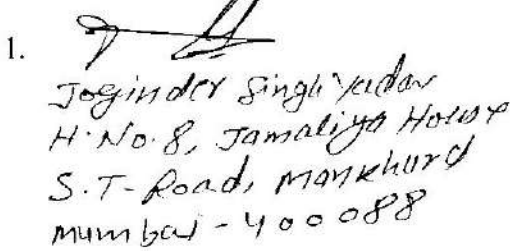 1.
Joginder Singh Yadav
H. No. 8, Jamaliya House
S.T- Road, Mankhurd
Mumbai - 400088